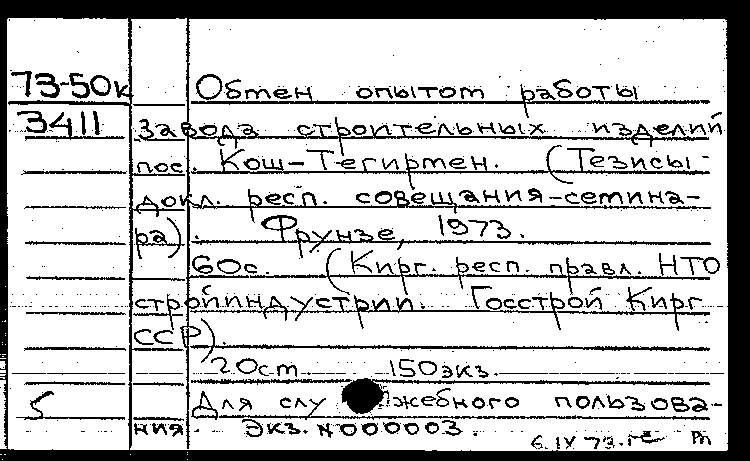 73-50к Обмен опытом работы
3411 завода строительных изделий
пос. Кош-Тегирмен. (Тезисы
докл. респ. совещания-семина-
ра). Фрунзе, 1973.
60с. (Кирг. респ. правл. НТО
стройиндустрии. Госстрой Кирг
ССР).
20ст. 150экз.
5 Для служебного пользова-
ния. Экз. №000003.
6.IV 73.